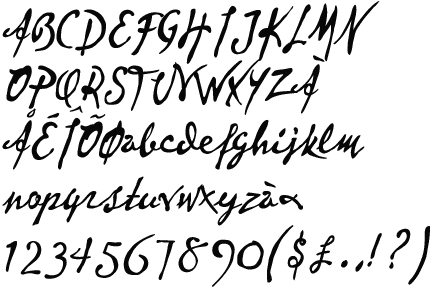 ABCDEFGHIJKLMN
OPQRSTUVWXYZÀ
ÅÉÎÕØabcdefghijklm
nopqrstuvwxyzàα
1234567890($£.,!?)